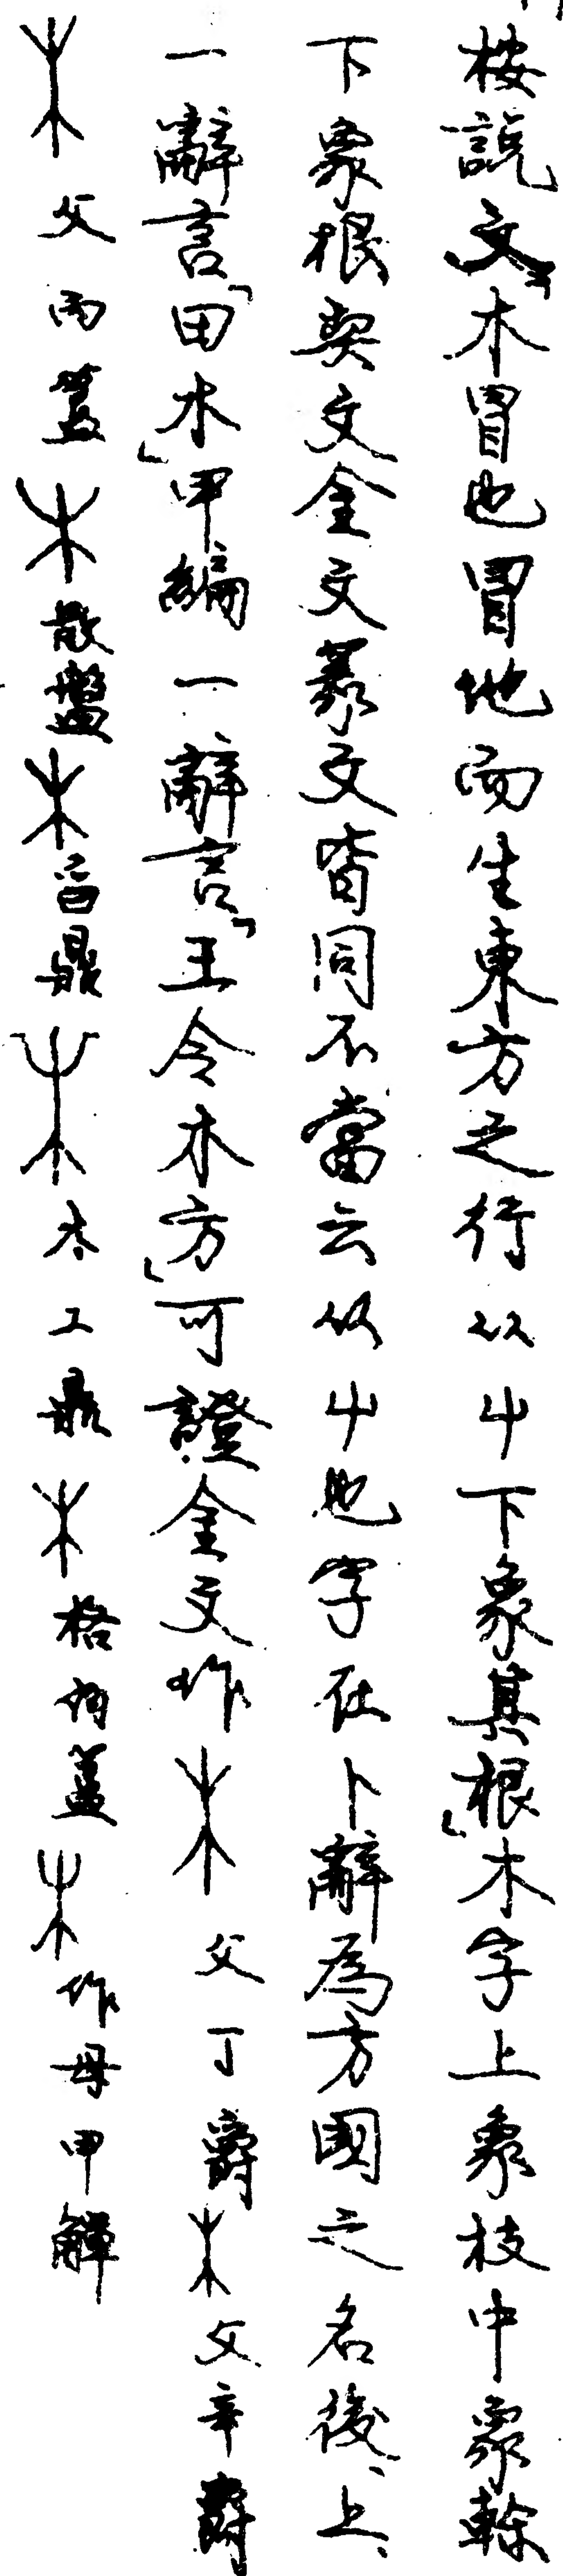 桉説文「木冒也冒地而生東方之行从屮下象其根」木字上象枝中象榦
下象根契文金文篆文皆同不當云从屮也字在卜辭為方國之名後、上、
一辭言「田木」甲編一辭言「王令木方」可證金文作木父丁爵木父辛爵
木父丙簋木散盤木曶鼎木木工鼎木格伯簋木作母甲觶